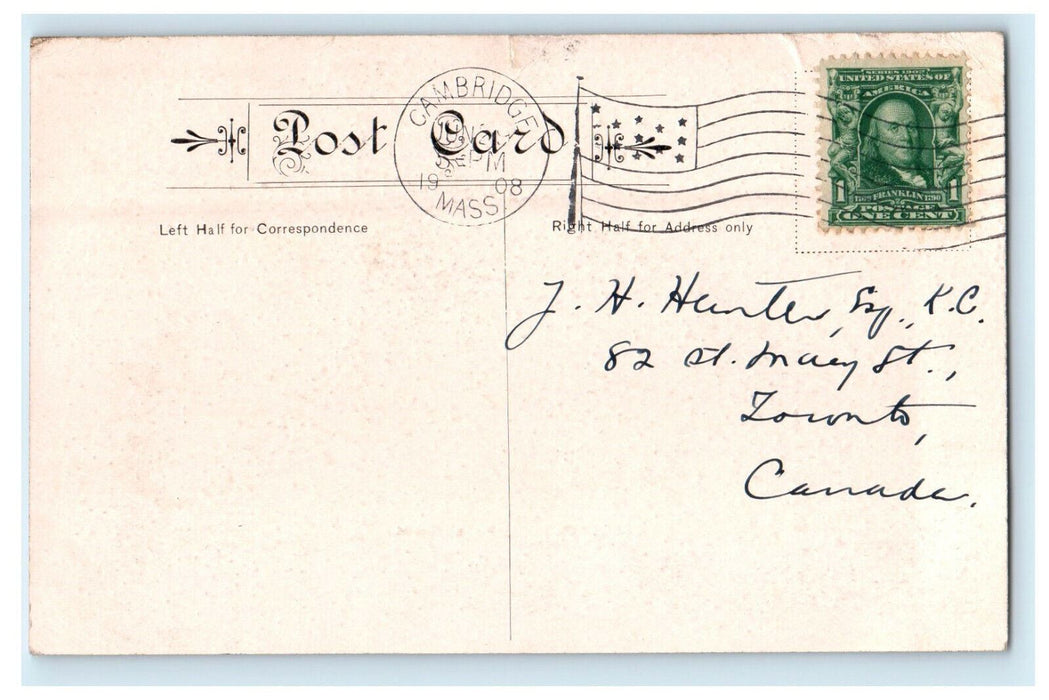 Post Card
CAMBRIDGE
PM
19 08
MASS.
SERIES 1902
UNITED STATES OF
AMERICA
1 FRANKLIN 1
POSTAGE
ONE CENT
Left Half for Correspondence
Right Half for Address only
J. H. Hunter, Esq., K.C.
82 St. Mary St.,
Toronto,
Canada.